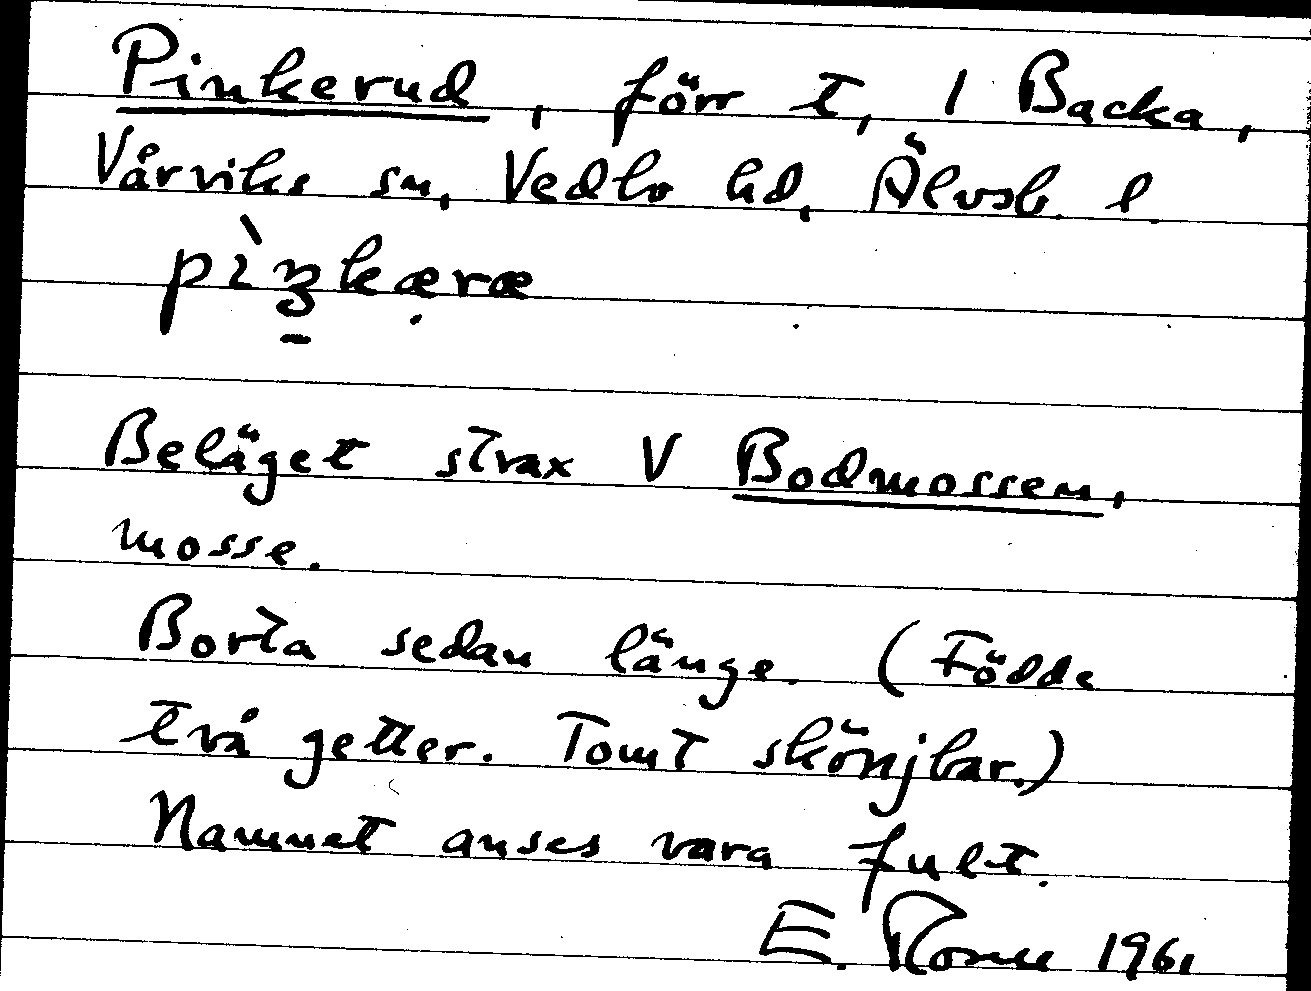 Pinkerud, förr t, 1 Backa,
Vårviks sn, Vedbo hd, Älvsb. l
pìŋkæræ
Beläget strax V Bodmossen,
mosse.
Borta sedan länge. (Födde
två getter. Tomt skönjbar.)
Namnet anses vara fult.
E. 1961